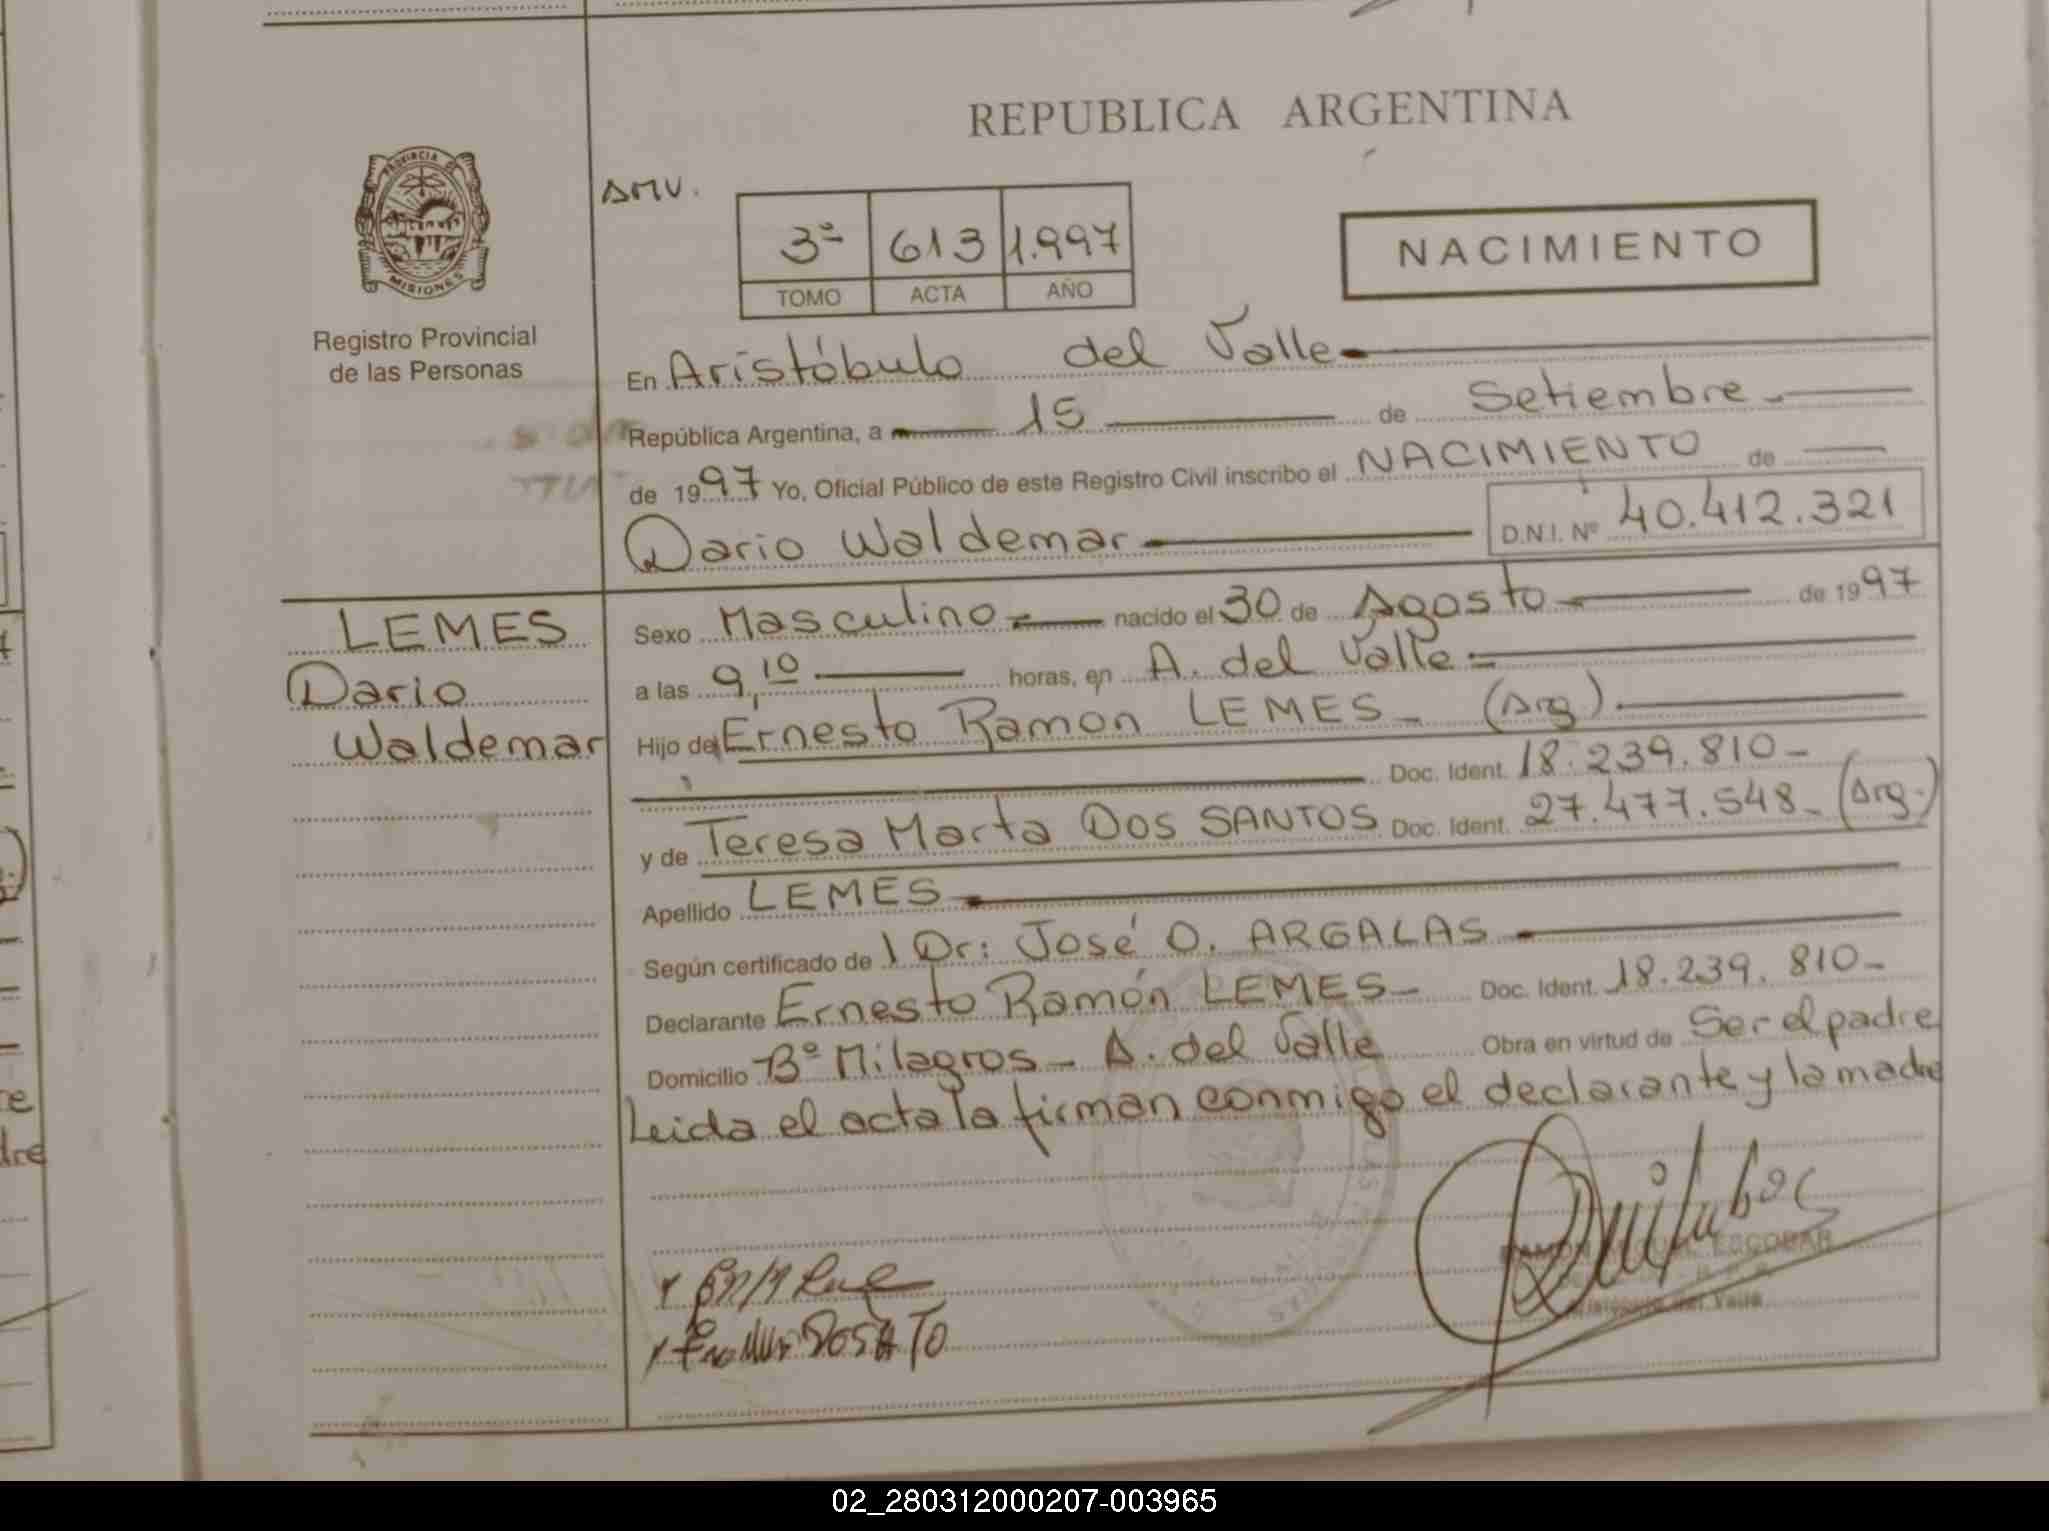 REPUBLICA ARGENTINA
PROVINCIA DE
MISIONES
Registro Provincial
de las Personas
AMV.
3º 613 1.997
TOMO ACTA AÑO
NACIMIENTO
En Aristóbulo del Valle
República Argentina, a 15 de Setiembre
de 1997 Yo, Oficial Público de este Registro Civil inscribo el NACIMIENTO de
Dario Waldemar D.N.I. Nº 40.412.321
LEMES
Dario
Waldemar
Sexo Masculino nacido el 30 de Agosto de 1997
a las 9,10 horas, en A. del Valle
Hijo de Ernesto Ramon LEMES (Arg.)
Doc. Ident. 18.239.810
y de Teresa Marta DOS SANTOS Doc. Ident. 27.477.548 (Arg.)
Apellido LEMES
Según certificado de l Dr: José O. ARGALAS
Declarante Ernesto Ramón LEMES Doc. Ident. 18.239.810
Domicilio Bº Milagros - A. del Valle Obra en virtud de Ser el padre
Leida el acta la firman conmigo el declarante y la madre
RAMON MIGUEL ESCOBAR
Aristóbulo del Valle
02_280312000207-003965